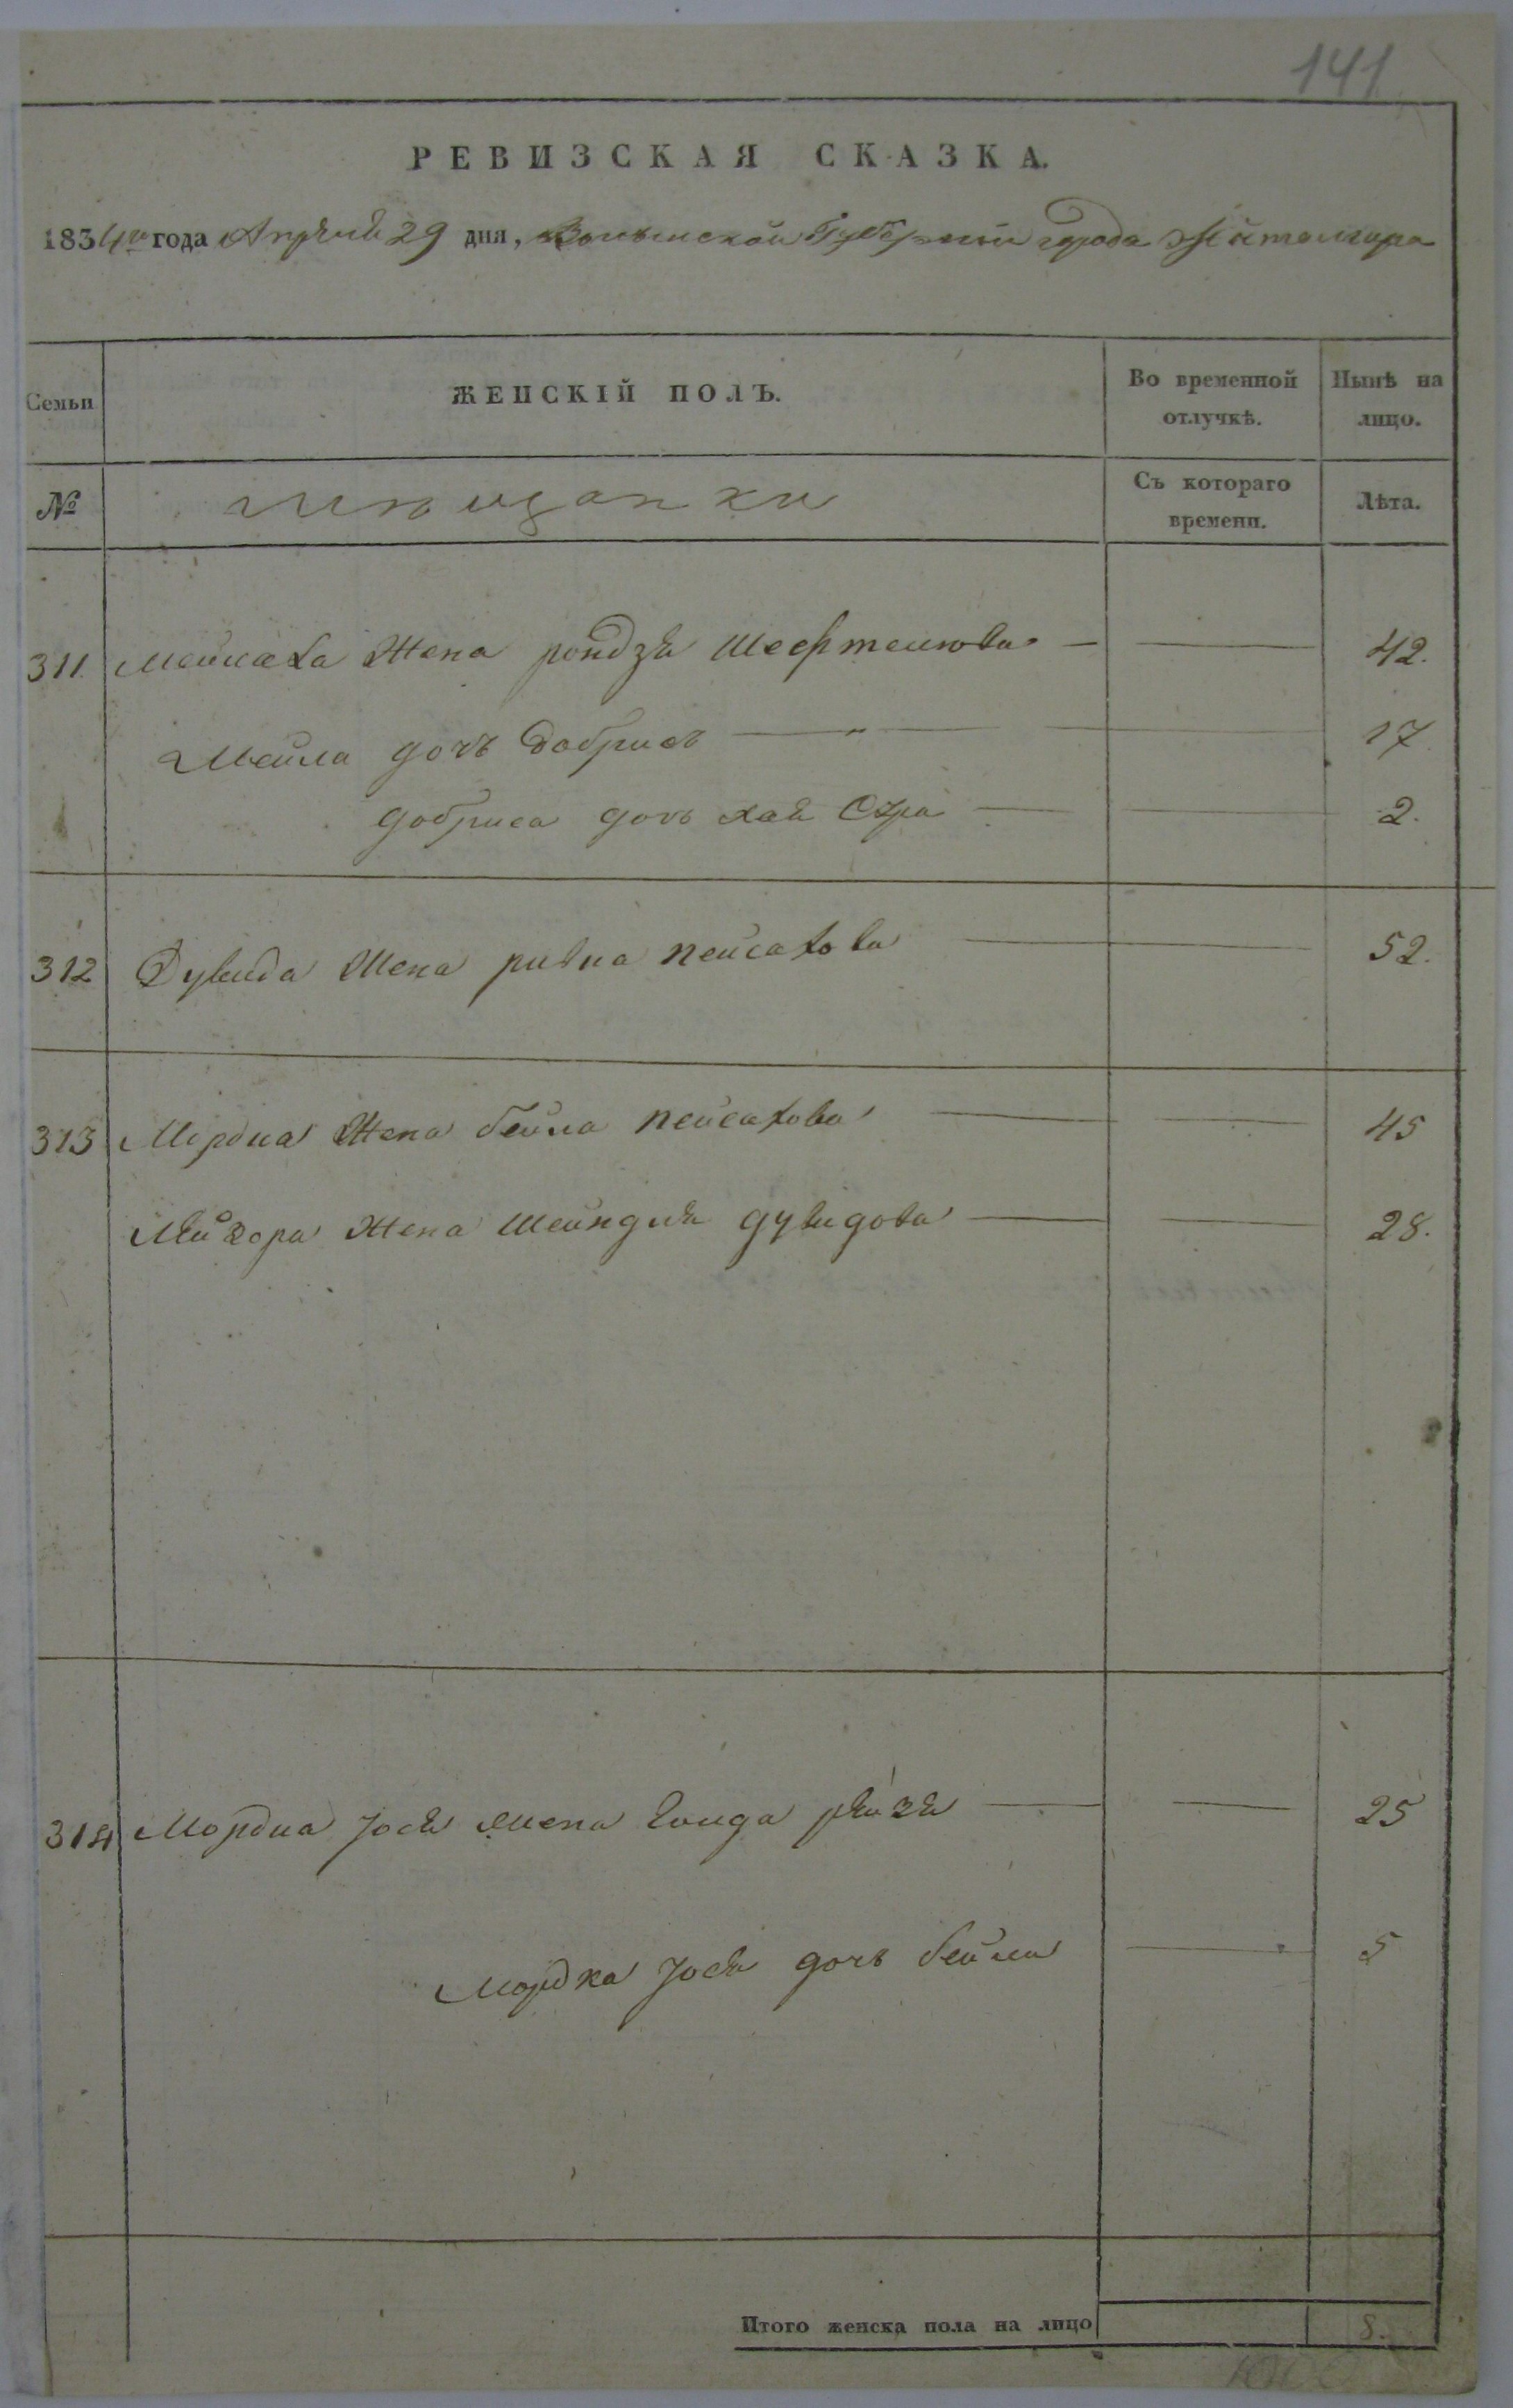 141
РЕВИЗСКАЯ СКАЗКА.
1834го года Апреля 29 дня, Волынской Губернии города Житомира
Семьи
ЖЕНСКІЙ ПОЛЪ.
Во временной отлучкѣ.
Нынѣ на лицо.
№
мещанки
Съ котораго времени.
Лѣта.
311 жена Шефтелиова — — 42.
дочь Добрисъ — — 17
добриса дочь хая Сура — — 2.
312 Дувида жена ривка пейсахова — 52.
313 жена бейла пейсахова — — 45
жена шейндля дувидова — — 28.
314 Іося жена рейзя — — 25
Мордка Іося дочь бейла — 5
Итого женска пола на лицо 8.